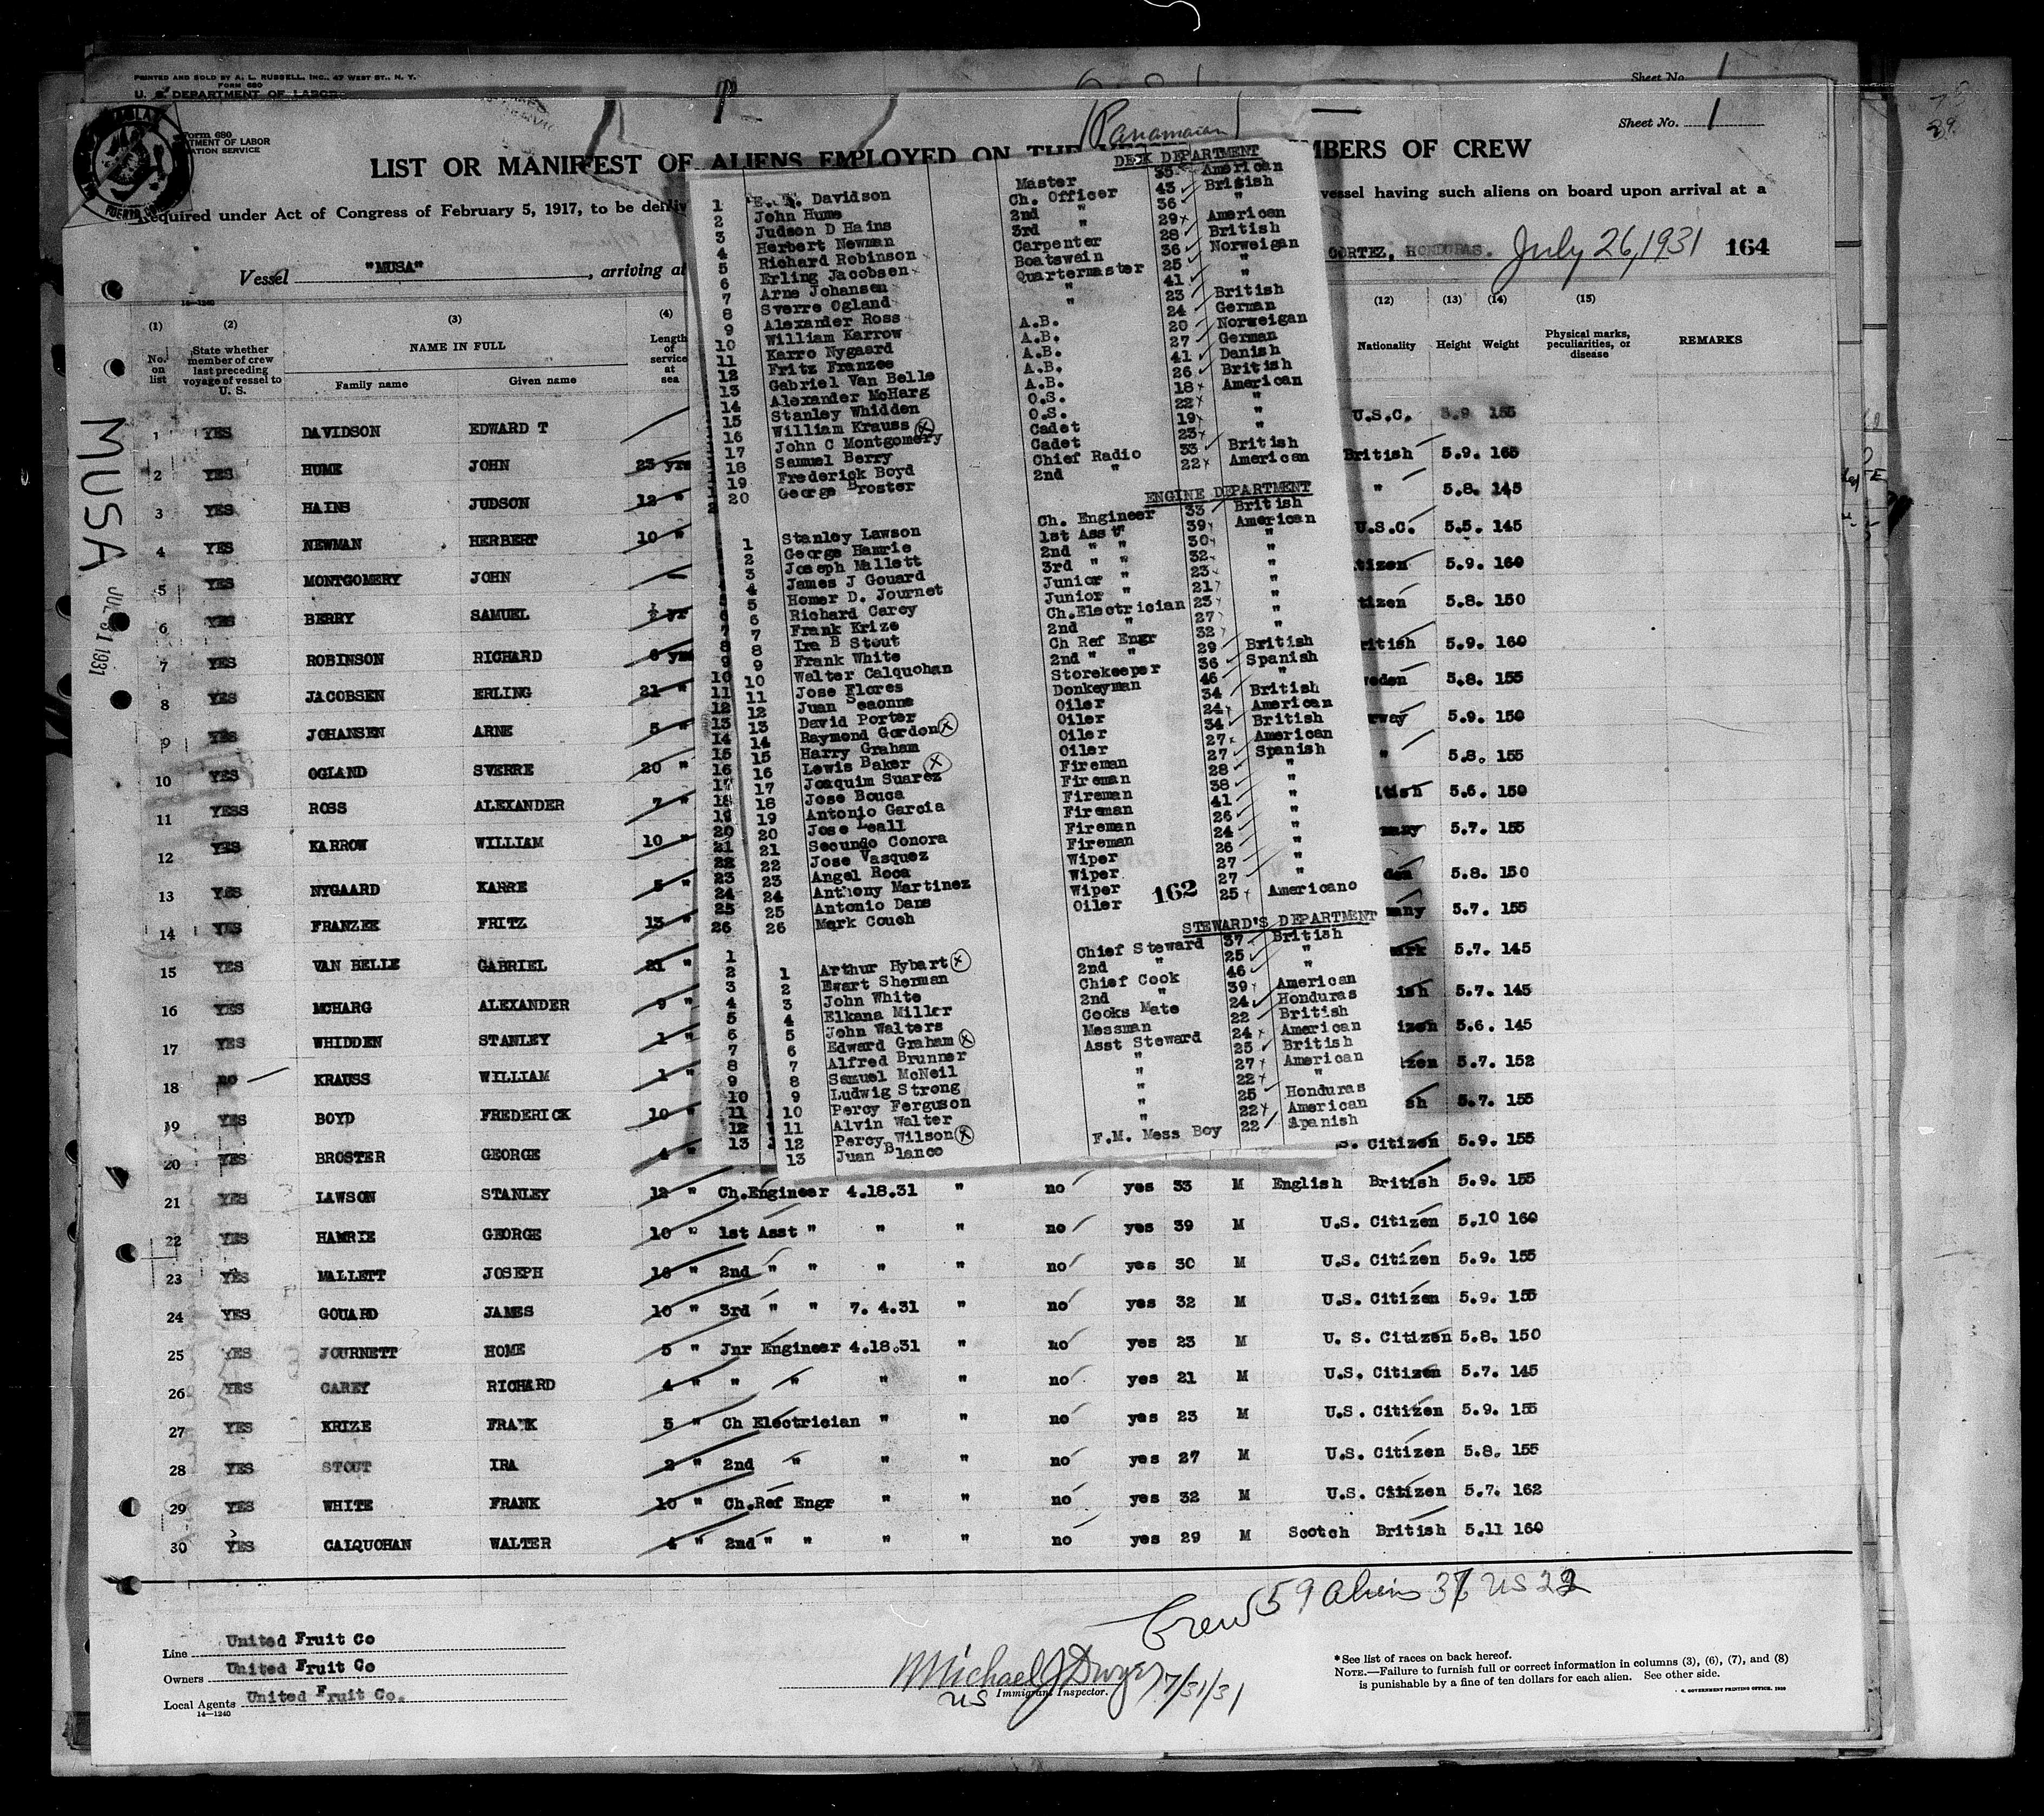 PRINTED AND SOLD BY A. L. RUSSELL, INC., 47 WEST ST., N. Y.
FORM 680
U. S. DEPARTMENT OF LABOR
Sheet No. 1
Form 680
TMENT OF LABOR
ATION SERVICE
Sheet No. 1
(Panamaian)
LIST OR MANIFEST OF ALIENS EMPLOYED ON THE MBERS OF CREW
Required under Act of Congress of February 5, 1917, to be deliv vessel having such aliens on board upon arrival at a
Vessel "MUSA", arriving at CORTEZ, HONDURAS. July 26, 1931 164
14—1240
(1) (2) (3) (4) (12) (13) (14) (15)
No. on list State whether member of crew last preceding voyage of vessel to U. S. NAME IN FULL Length of service at sea Nationality Height Weight Physical marks, peculiarities, or disease REMARKS
Family name Given name
MUSA
JUL 31 1931
1 YES DAVIDSON EDWARD T U.S.C. 5.9 155
2 YES HUME JOHN 23 yrs British 5.9. 165
3 YES HAINS JUDSON 12 " " 5.8. 145
4 YES NEWMAN HERBERT 10 " U.S.C. 5.5. 145
5 YES MONTGOMERY JOHN tizen 5.9. 160
6 YES BERRY SAMUEL ½ yr tizen 5.8. 150
7 YES ROBINSON RICHARD 6 yrs ritish 5.9. 160
8 YES JACOBSEN ERLING 21 " eden 5.8. 155
9 YES JOHANSEN ARNE 5 " rway 5.9. 150
10 YES OGLAND SVERRE 20 " " 5.8. 155
11 YESS ROSS ALEXANDER 7 " itish 5.6. 150
12 YES KARROW WILLIAM 10 " many 5.7. 155
13 YES NYGAARD KARRE 5 " den 5.8. 150
14 YES FRANZEE FRITZ 13 " many 5.7. 155
15 YES VAN BELLE GABRIEL 21 " ark 5.7. 145
16 YES MCHARG ALEXANDER 9 " ish 5.7. 145
17 YES WHIDDEN STANLEY 1 " izen 5.6. 145
18 no KRAUSS WILLIAM 1 " zen 5.7. 152
19 YES BOYD FREDERICK 10 " sh 5.7. 155
20 YES BROSTER GEORGE 4 " S. Citizen 5.9. 155
21 YES LAWSON STANLEY 12 " Ch.Engineer 4.18.31 " no yes 33 M English British 5.9. 155
22 YES HAMRIE GEORGE 10 " 1st Asst " " " no yes 39 M U.S. Citizen 5.10 160
23 YES MALLETT JOSEPH 10 " 2nd " " " " no yes 30 M U.S. Citizen 5.9. 155
24 YES GOUARD JAMES 10 " 3rd " " 7. 4.31 " no yes 32 M U.S. Citizen 5.9. 155
25 YES JOURNETT HOME 5 " Jnr Engineer 4.18.31 " no yes 23 M U. S. Citizen 5.8. 150
26 YES CAREY RICHARD 4 " " " " " no yes 21 M U.S. Citizen 5.7. 145
27 YES KRIZE FRANK 5 " Ch Electrician " " no yes 23 M U.S. Citizen 5.9. 155
28 YES STOUT IRA 2 " 2nd " " " no yes 27 M U.S. Citizen 5.8. 155
29 YES WHITE FRANK 10 " Ch.Ref Engr " " no yes 32 M U.S. Citizen 5.7. 162
30 YES CALQUOHAN WALTER 4 " 2nd " " " " no yes 29 M Scotch British 5.11 160
DECK DEPARTMENT
1 E. T. Davidson Master 35 American
2 John Hume Ch. Officer 43 British
3 Judson D Hains 2nd " 36 "
4 Herbert Newman 3rd " 29 American
5 Richard Robinson Carpenter 28 British
6 Erling Jacobsen Boatswain 36 Norweigan
7 Arne Johansen Quartermaster 25 "
8 Sverre Ogland " 41 "
9 Alexander Ross " 23 British
10 William Karrow A.B. 24 German
11 Karro Nygaard A.B. 20 Norweigan
12 Fritz Franzee A.B. 27 German
13 Gabriel Van Belle A.B. 41 Danish
14 Alexander McHarg A.B. 26 British
15 Stanley Whidden O.S. 18 American
16 William Krauss O.S. 22 "
17 John C Montgomery Cadet 19 "
18 Samuel Berry Cadet 23 "
19 Frederick Boyd Chief Radio 33 British
20 George Broster 2nd " 22 American
ENGINE DEPARTMENT
1 Stanley Lawson Ch. Engineer 33 British
2 George Hamrie 1st Asst" 39 American
3 Joseph Mallett 2nd " " 30 "
4 James J Gouard 3rd " " 32 "
5 Homer D. Journet Junior " 23 "
6 Richard Carey Junior " 21 "
7 Frank Krize Ch.Electrician 23 "
8 Ira B Stout 2nd " 27 "
9 Frank White Ch Ref Engr 32 "
10 Walter Calquohan 2nd " " 29 British
11 Jose Flores Storekeeper 36 Spanish
12 Juan Seaonne Donkeyman 46 "
13 David Porter Oiler 34 British
14 Raymond Gordon Oiler 24 American
15 Harry Graham Oiler 34 British
16 Lewis Baker Oiler 27 American
17 Joaquim Suarez Fireman 27 Spanish
18 Jose Bouca Fireman 28 "
19 Antonio Garcia Fireman 38 "
20 Jose Leall Fireman 41 "
21 Secundo Conora Fireman 26 "
22 Jose Vasquez Fireman 24 "
23 Angel Roca Wiper 26 "
24 Anthony Martinez Wiper 27 "
25 Antonio Dans Wiper 27 "
26 Mark Couch Oiler 25 Americano
162
STEWARD'S DEPARTMENT
1 Arthur Hybart Chief Steward 37 British
2 Ewart Sherman 2nd " 25 "
3 John White Chief Cook 46 "
4 Elkana Miller 2nd " 39 American
5 John Walters Cooks Mate 24 Honduras
6 Edward Graham Messman 22 British
7 Alfred Brunner Asst Steward 24 American
8 Samuel McNeil " 25 British
9 Ludwig Strong " 27 American
10 Percy Ferguson " 22 "
11 Alvin Walter " 25 Honduras
12 Percy Wilson " 22 American
13 Juan Blanco F.M. Mess Boy 22 Spanish
Crew 59 Aliens 37 US 22
Line United Fruit Co
Owners United Fruit Co
Local Agents United Fruit Co.
14—1240
Michael J Dwyer 7/31/31
US Immigrant Inspector.
*See list of races on back hereof.
NOTE.—Failure to furnish full or correct information in columns (3), (6), (7), and (8)
is punishable by a fine of ten dollars for each alien. See other side.